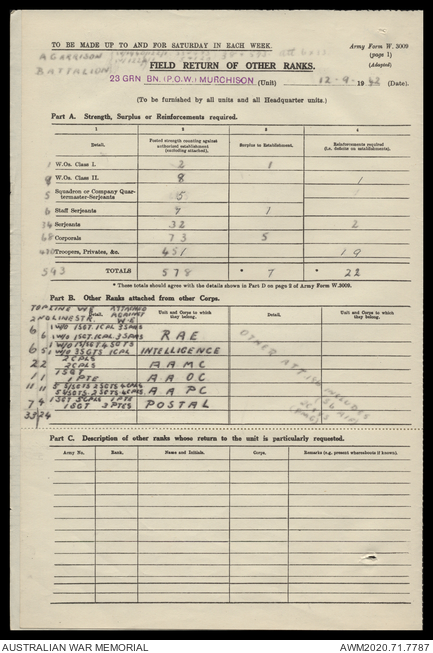 TO BE MADE UP TO AND FOR SATURDAY IN EACH WEEK.
Army Form W. 3009
(page 1)
(Adapted)
A GARRISON
BATTALION
FIELD RETURN OF OTHER RANKS.
23 GRN BN. (P.O.W.) MURCHISON (Unit) 12-9-1942 (Date).
(To be furnished by all units and all Headquarter units.)
Part A. Strength, Surplus or Reinforcements required.
1 2 3 4
Detail. Posted strength counting against authorized establishment (excluding attached). Surplus to Establishment. Reinforcements required (i.e. deficits on establishment).
1 W.Os. Class I. 2 1
9 W.Os. Class II. 8 1
5 Squadron or Company Quartermaster-Serjeants 5
6 Staff Serjeants 7 1
34 Serjeants 32 2
68 Corporals 73 5
470 Troopers, Privates, &c. 451 19
593 TOTALS 578 * 7 * 22
* These totals should agree with the details shown in Part D on page 2 of Army Form W.3009.
Part B. Other Ranks attached from other Corps.
TOP LINE WE ATTACHED AGAINST W.E.
2ND LINE STR.
Detail. Unit and Corps to which they belong. Detail. Unit and Corps to which they belong.
6 1 W/O 1 SGT. 1 CPL 3 SPRS
6 1 W/O 1 SGT. 1 CPL 3 SPRS RAE
6 1 W/O
5 1 W/O 3 SGTS 1 CPL INTELLIGENCE
2 2 CPLS
2 2 CPLS AAMC
1 1 SGT
1 1 PTE AAOC
11
11 AAPC
7 1 SGT 5 CPLS 1 PTE
1 SGT 3 PTES POSTAL
33
OTHER ATT INCLUDES
Part C. Description of other ranks whose return to the unit is particularly requested.
Army No. Rank. Name and Initials. Corps. Remarks (e.g. present whereabouts if known).
AUSTRALIAN WAR MEMORIAL
AWM2020.71.7787